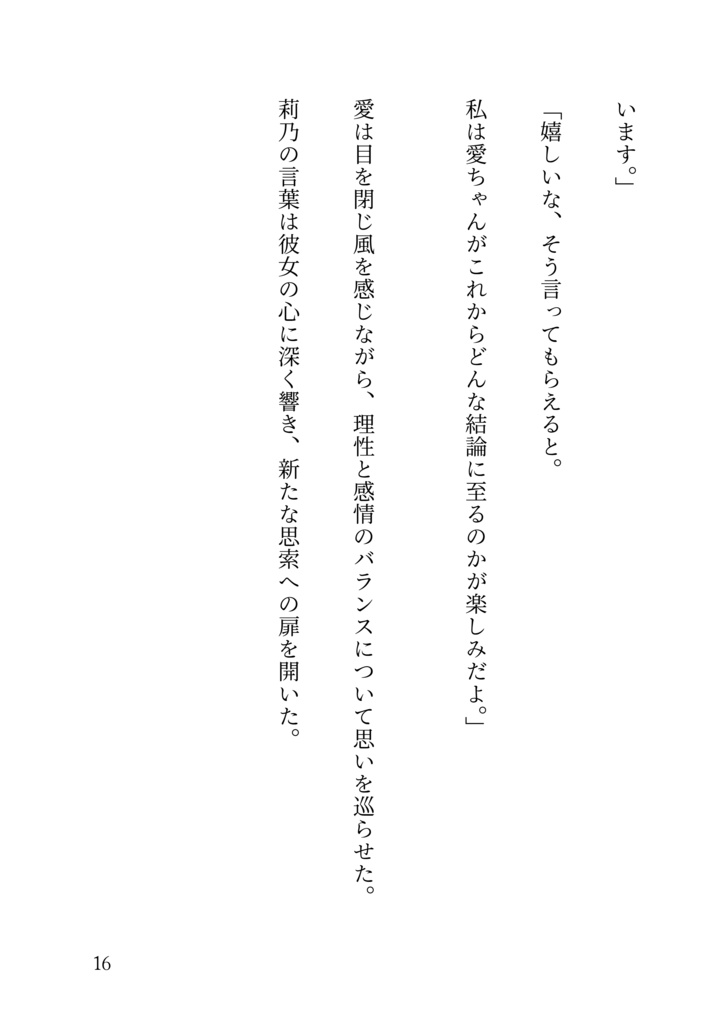 います。」
「嬉しいな、そう言ってもらえると。
私は愛ちゃんがこれからどんな結論に至るのかが楽しみだよ。」
愛は目を閉じ風を感じながら、理性と感情のバランスについて思いを巡らせた。
莉乃の言葉は彼女の心に深く響き、新たな思索への扉を開いた。
16